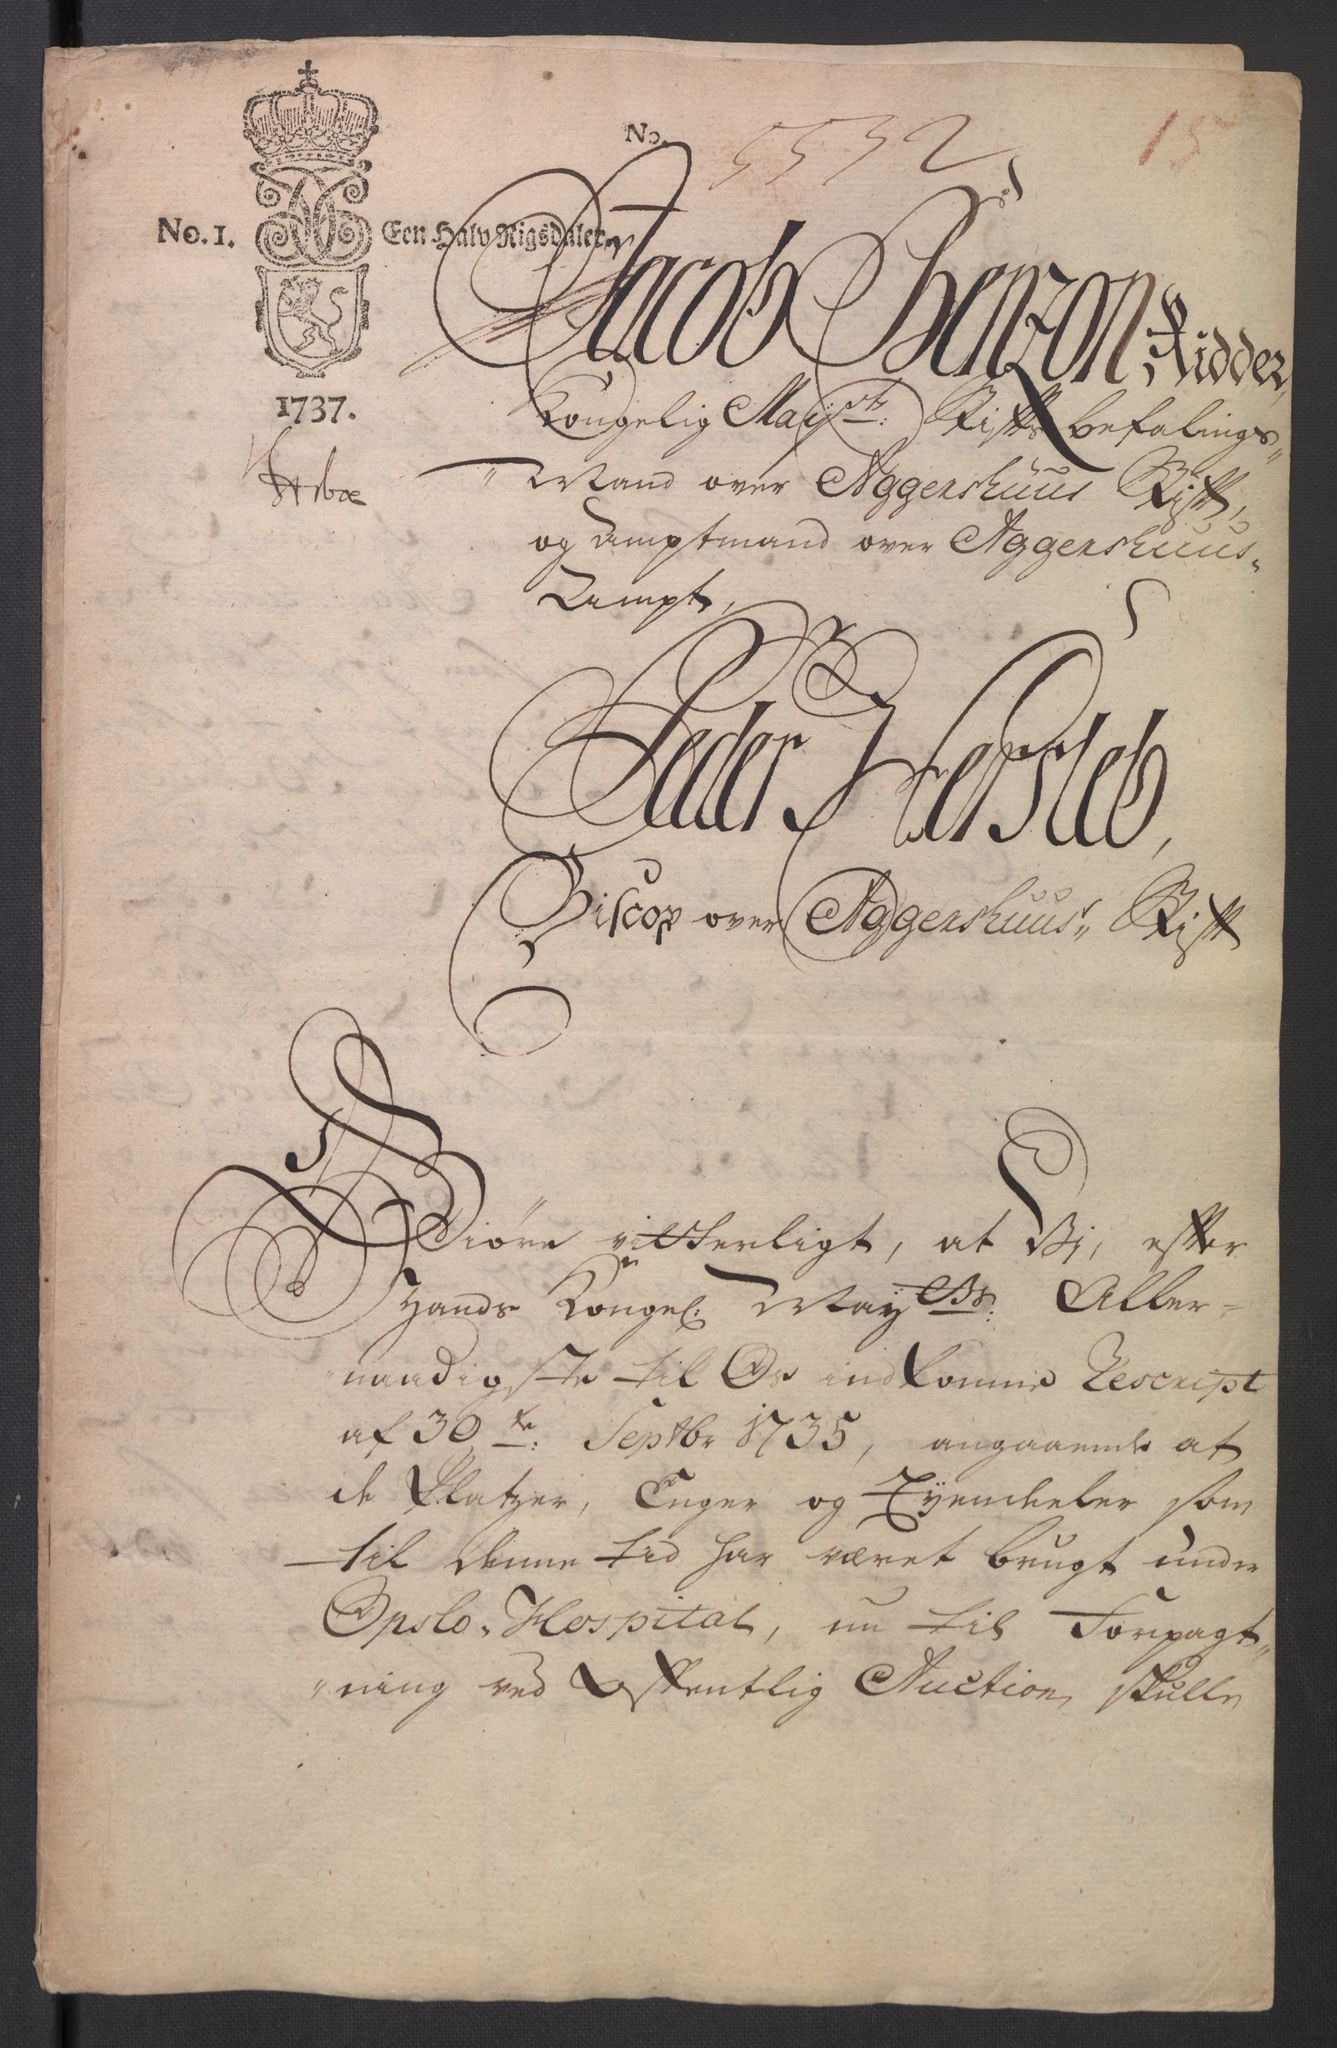 No. 5532
15
No. 1. Een Halv Rigsdaler.
1737.
Jacob Benzon, Ridder,
Kongelig Mayts: Stifts befalings„
„Mand over Aggershuus Stift,
og Amptmand over Aggershuus„
Ampt,
Peder Hersleb,
Biscop over Aggershuus„ Stift
Giøre vitterligt, at Vi, efter
Hands Kongel: Mayts: Aller=
naadigste til Os indkomne Rescript
af 30te: Septbr 1735, angaaende at
de Platzer, Enger og Eyendeeler som
til denne tid har været brugt under
Opslo„ Hospital, nu til Forpagt„
„ning ved offentlig Auction, skulle